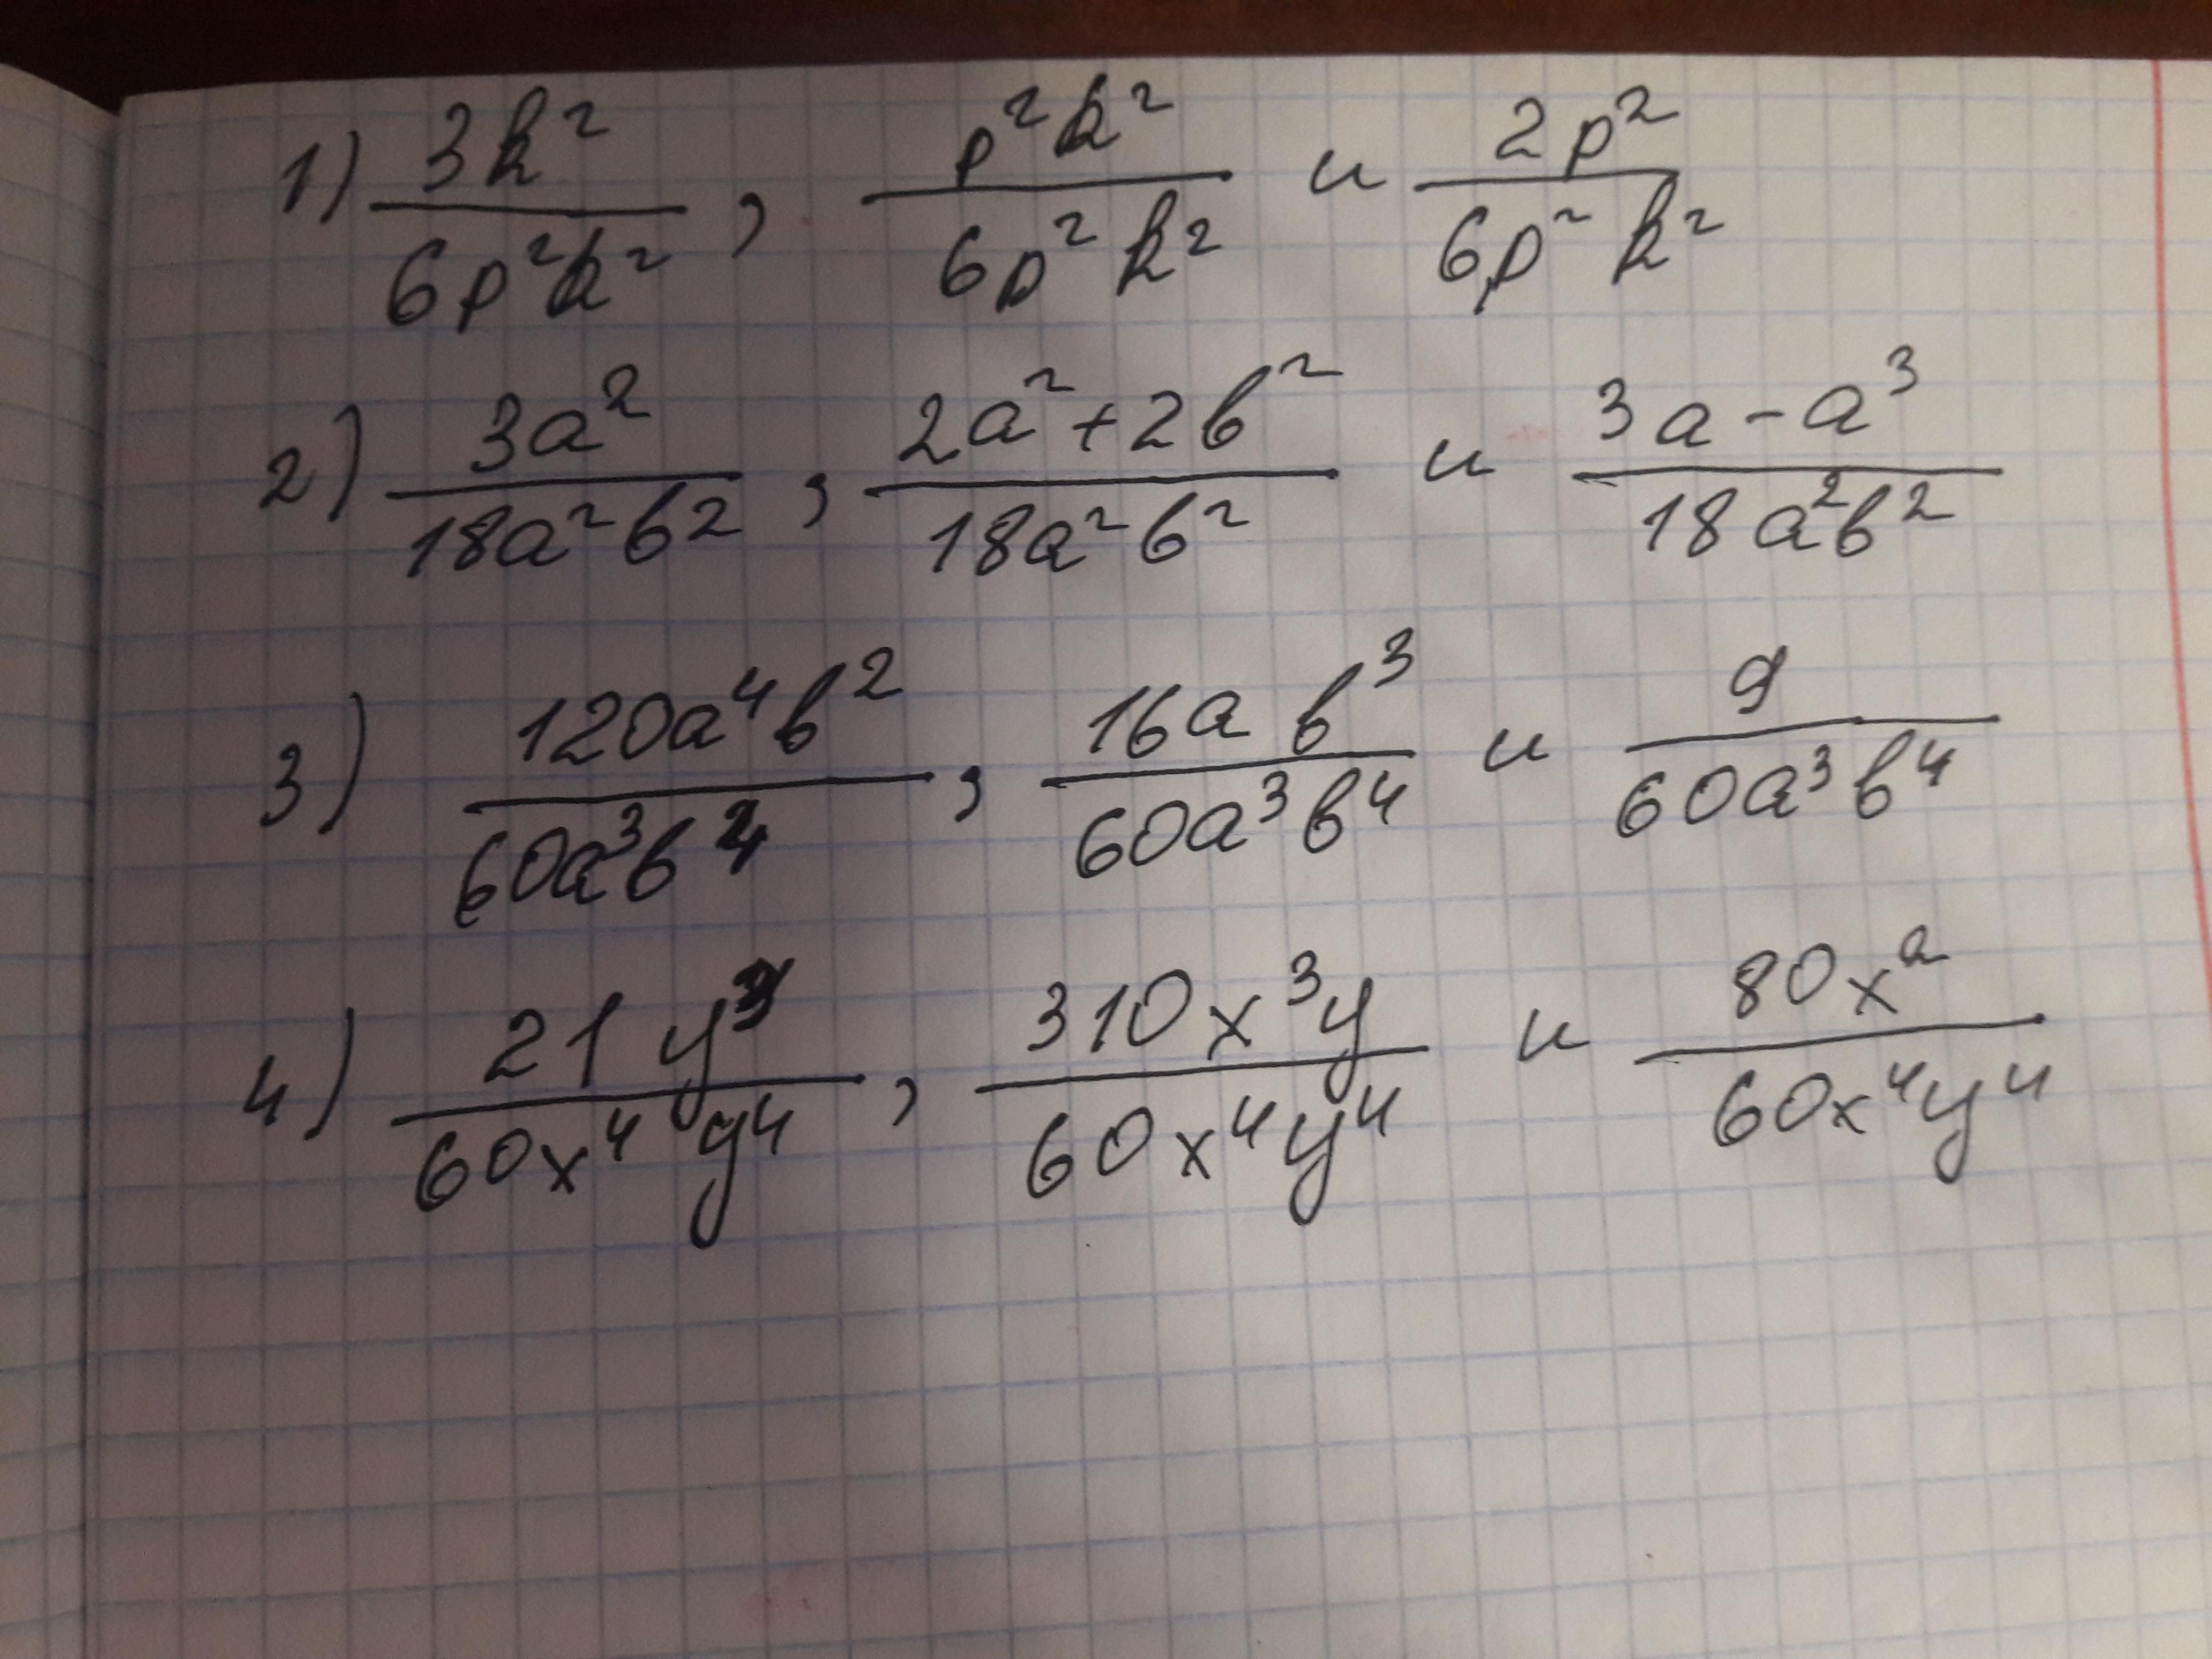 1) 3k² / 6p²k² , p²k² / 6p²k² и 2p² / 6p²k²
2) 3a² / 18a²b² , 2a²+2b² / 18a²b² и 3a-a³ / 18a²b²
3) 120a⁴b² / 60a³b⁴ , 16ab³ / 60a³b⁴ и 9 / 60a³b⁴
4) 21y³ / 60x⁴y⁴ , 310x³y / 60x⁴y⁴ и 80x² / 60x⁴y⁴